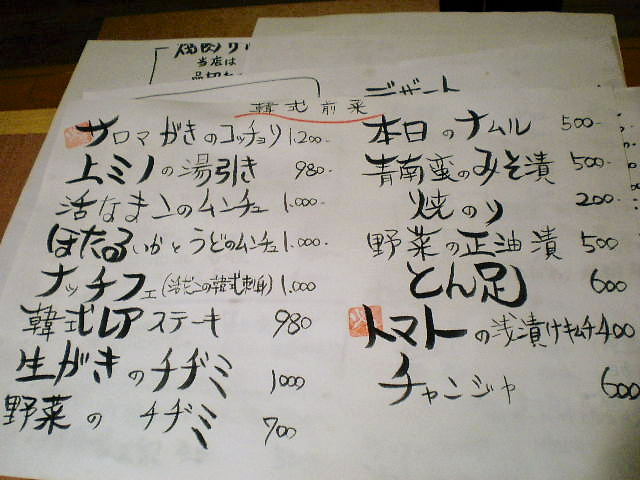 当店は
デザート
韓式前菜
サロマがきのコッチョリ 1.200-
上ミノの湯引き 980-
活なまこのムンチュ 1.000-
ほたるいかとうどのムンチュ 1.000-
ナッチフェ(活だこの韓式刺身) 1.000
韓式レアステーキ 980
生がきのチヂミ 1000
野菜のチヂミ 700
本日のナムル 500-
青南蛮のみそ漬 500-
焼のり 200-
野菜の正油漬 500
とん足 600
トマトの浅漬けキムチ 400
チャンジャ 600